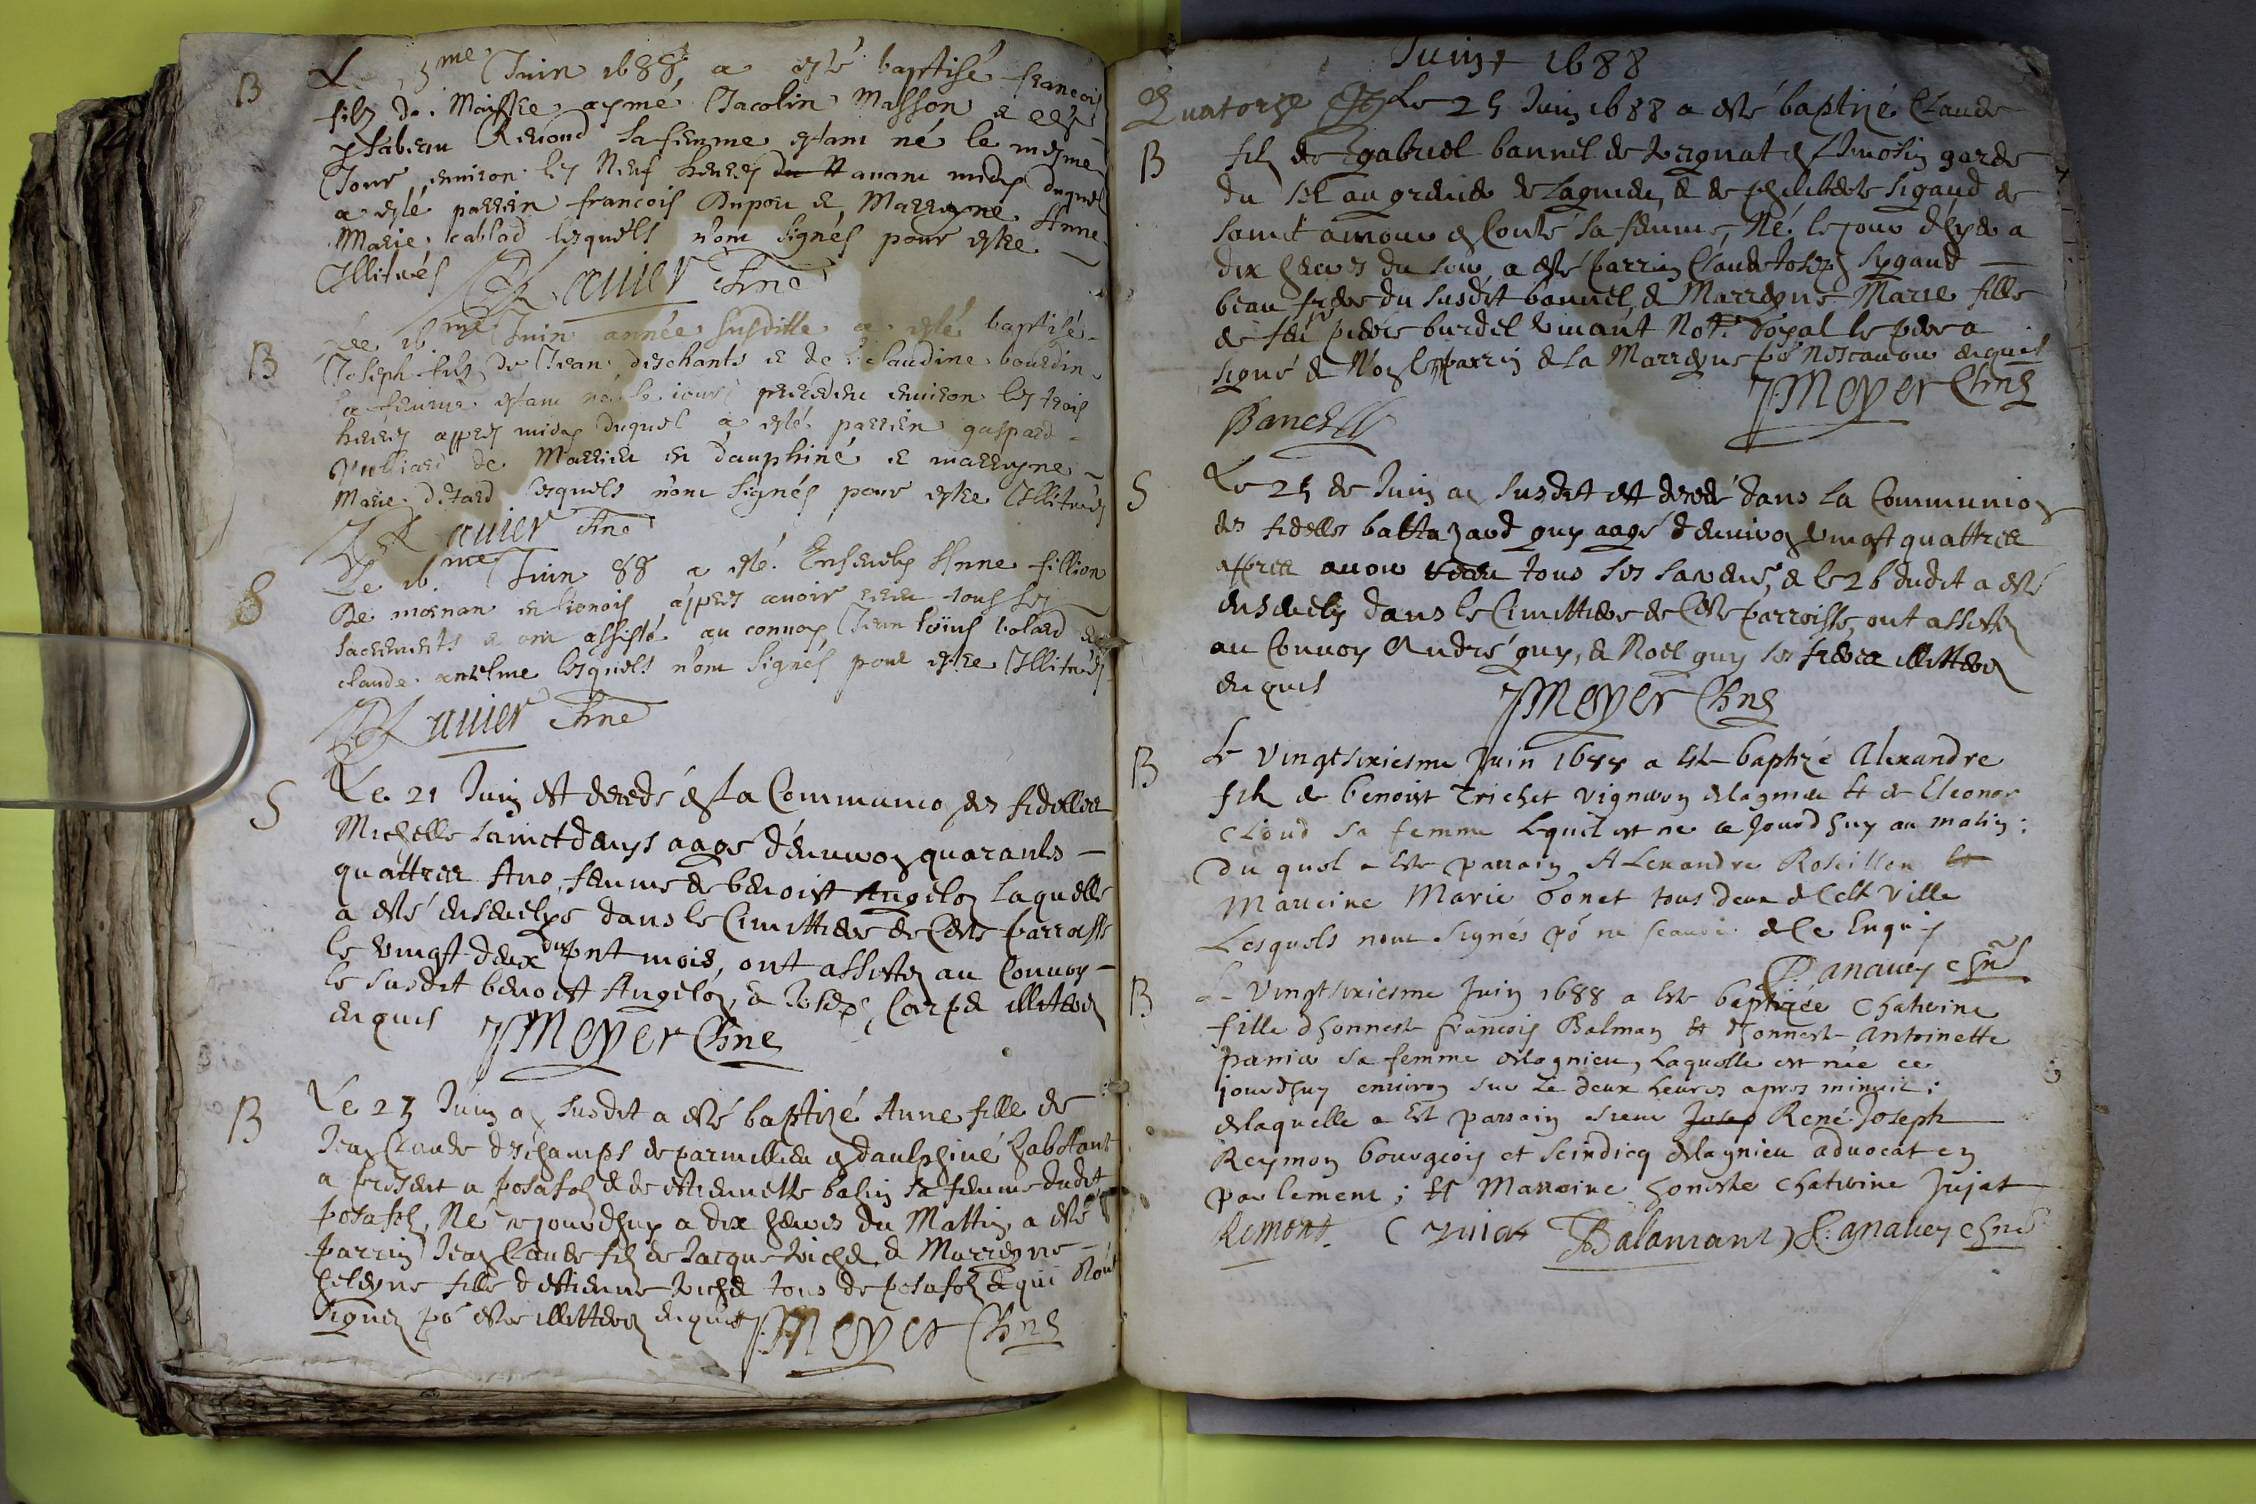 B Le 15me Juin 1688 a esté baptisé francois
filz de Maistre aymé Jacolin Masson et de
ysabeau Revond sa femme estant né le mesme
Jour environ les Neuf heures avant midy duquel
a esté parrin francois Dupon et Marreyne Anne
Marie cablad lesquels n'ont signés pour estre
Illitrés
Lauier chne
B Le 16me Juin année susditte a esté baptisé
Joseph filz de Jean deschants et de claudine bourdin
sa femme estant né le iour precedent environ les trois
heures appres midy duquel a esté parrien gaspard
de Marrieu en dauphiné et marreyne
Marie ditard lesquels n'ont signés pour estre Illitrés
Lauier chne
S Le 16me Juin 88 a esté Ensevely Anne fillion
De mornan en lionois appres avoir receu tous les
sacrements et ont assisté au convoy Jean loüis bolard et
claude antelme lesquels n'ont signés pour estre Illitrés
Lauier chne
S Le 21 Juin est decedé en la Communion des fidelles
Michelle sainctdenys aagé d'environ quarante
quattre Ans, femme de benoist Angelon laquelle
a esté ensevelye dans le Cimettiere de Ceste parroisse
le vingt deux du pnt mois, ont assistez au Convoy
le susdit benoist Angelon, & Joseph Carpe illiterez
enquis JMeyer Chne
B Le 23 Juin an susdit a esté baptizé Anne fille de
Jean Claude deschamps de parmillieu en daulphiné habitant
a present a posafol & de estiennette balin sa femme dudit
posafol, Né ce jourdhuy a dix heures du Mattin, a esté
parrin Jean Claude fils de Jacque Richd & Marreyne
heleyne fille d'estienne Richd tous de posafol & qui N'ont
signez po estre illitterez enquis JMeyer Chne
Juin 1688
Quatorze Le 25 Juin 1688 a esté baptizé Claude
B fils de gabriel bannel de en garde
du sel au grenier de Lagnieu, & de philiberte sigaud de
sainct amour en Conté sa femme, Né le jour d'hyer a
dix heures du soir, a esté parrin Claude Joseph sygaud
beau frere du susdit bannel, & Marreyne Marie fille
de feu pierre burdel vivant Not. Royal le pere a
signé & Non le parrin & la Marreyne po Ne scavoir enquis
Bancel JMeyer Chne
S Le 25 de Juin an susdit est decedé dans la Communion
des fidelles baltazard guy aagé d'environ vingt quattre
appres avoir receu tous ses sacrem., & le 26 dudit a esté
ensevely dans le Cimettiere de Ceste parroisse, ont assistez
au Convoy André guy, & Noel guy ses freres illitterez
enquis JMeyer Chne
B Le vingtsixiesme Juin 1688 a esté baptizé Alexandre
fils de benoist Trichet vigneron de lagnieu et de Eleonor
Cloud sa femme lequel est né ce jourdhuy au matin;
Du quel a esté parrain Alexandre Roseillen et
Marreine Marie bonet tous deux de Cette Ville
Lesquels n'ont signés po ne scavoir de ce Enquis
Panauey chne
B Le Vingtsixiesme Juin 1688 a esté baptizée Chaterine
fille d'honneste francois Balman et d'honneste Antoinette
pania sa femme de lagnieu, Laquelle est née ce
jourdhuy environ sur le deux heures apres minuit;
de laquelle a esté parrain sieur Josep René-Joseph
Reymon bourgeois et Scindicq de lagnieu advocat en
parlement; et Marreine honeste chaterine Jujat
Remont C Juiat Balamant P. anauey chne